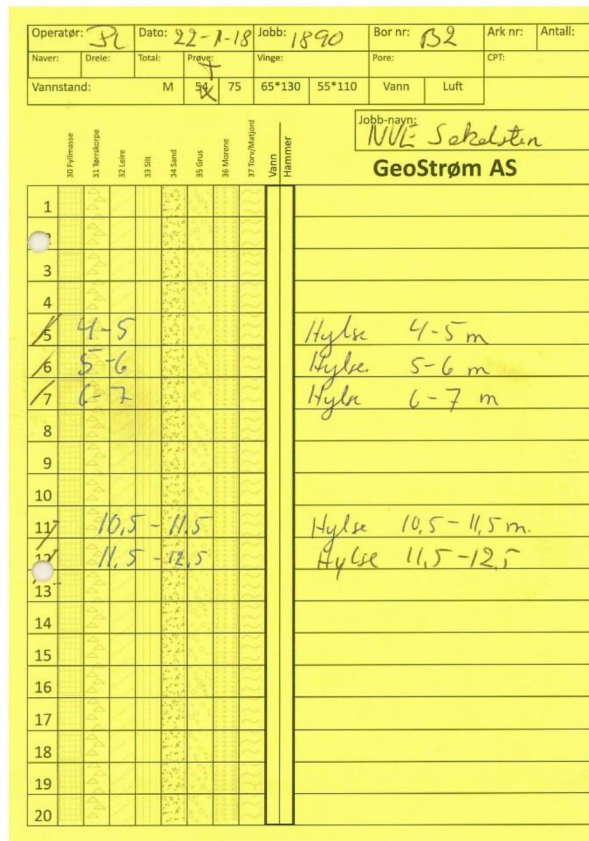 Operatør: PL Dato: 22-1-18 Jobb: 1890 Bor nr: B2 Ark nr: Antall:
Naver: Dreie: Total: Prøve: Vinge: Pore: CPT:
Vannstand: M 54 75 65*130 55*110 Vann Luft
Jobb-navn:
NVE
GeoStrøm AS
30 Fyllmasse 31 Tørrskorpe 32 Leire 33 Silt 34 Sand 35 Grus 36 Morene 37 Torv/Matjord Vann Hammer
1
3
4
5 4-5 Hylse 4-5 m
6 5-6 Hylse 5-6 m
7 6-7 Hylse 6-7 m
8
9
10
11 10,5-11.5 Hylse 10,5-11,5 m.
12 11,5-12,5 Hylse 11,5-12,5
13
14
15
16
17
18
19
20